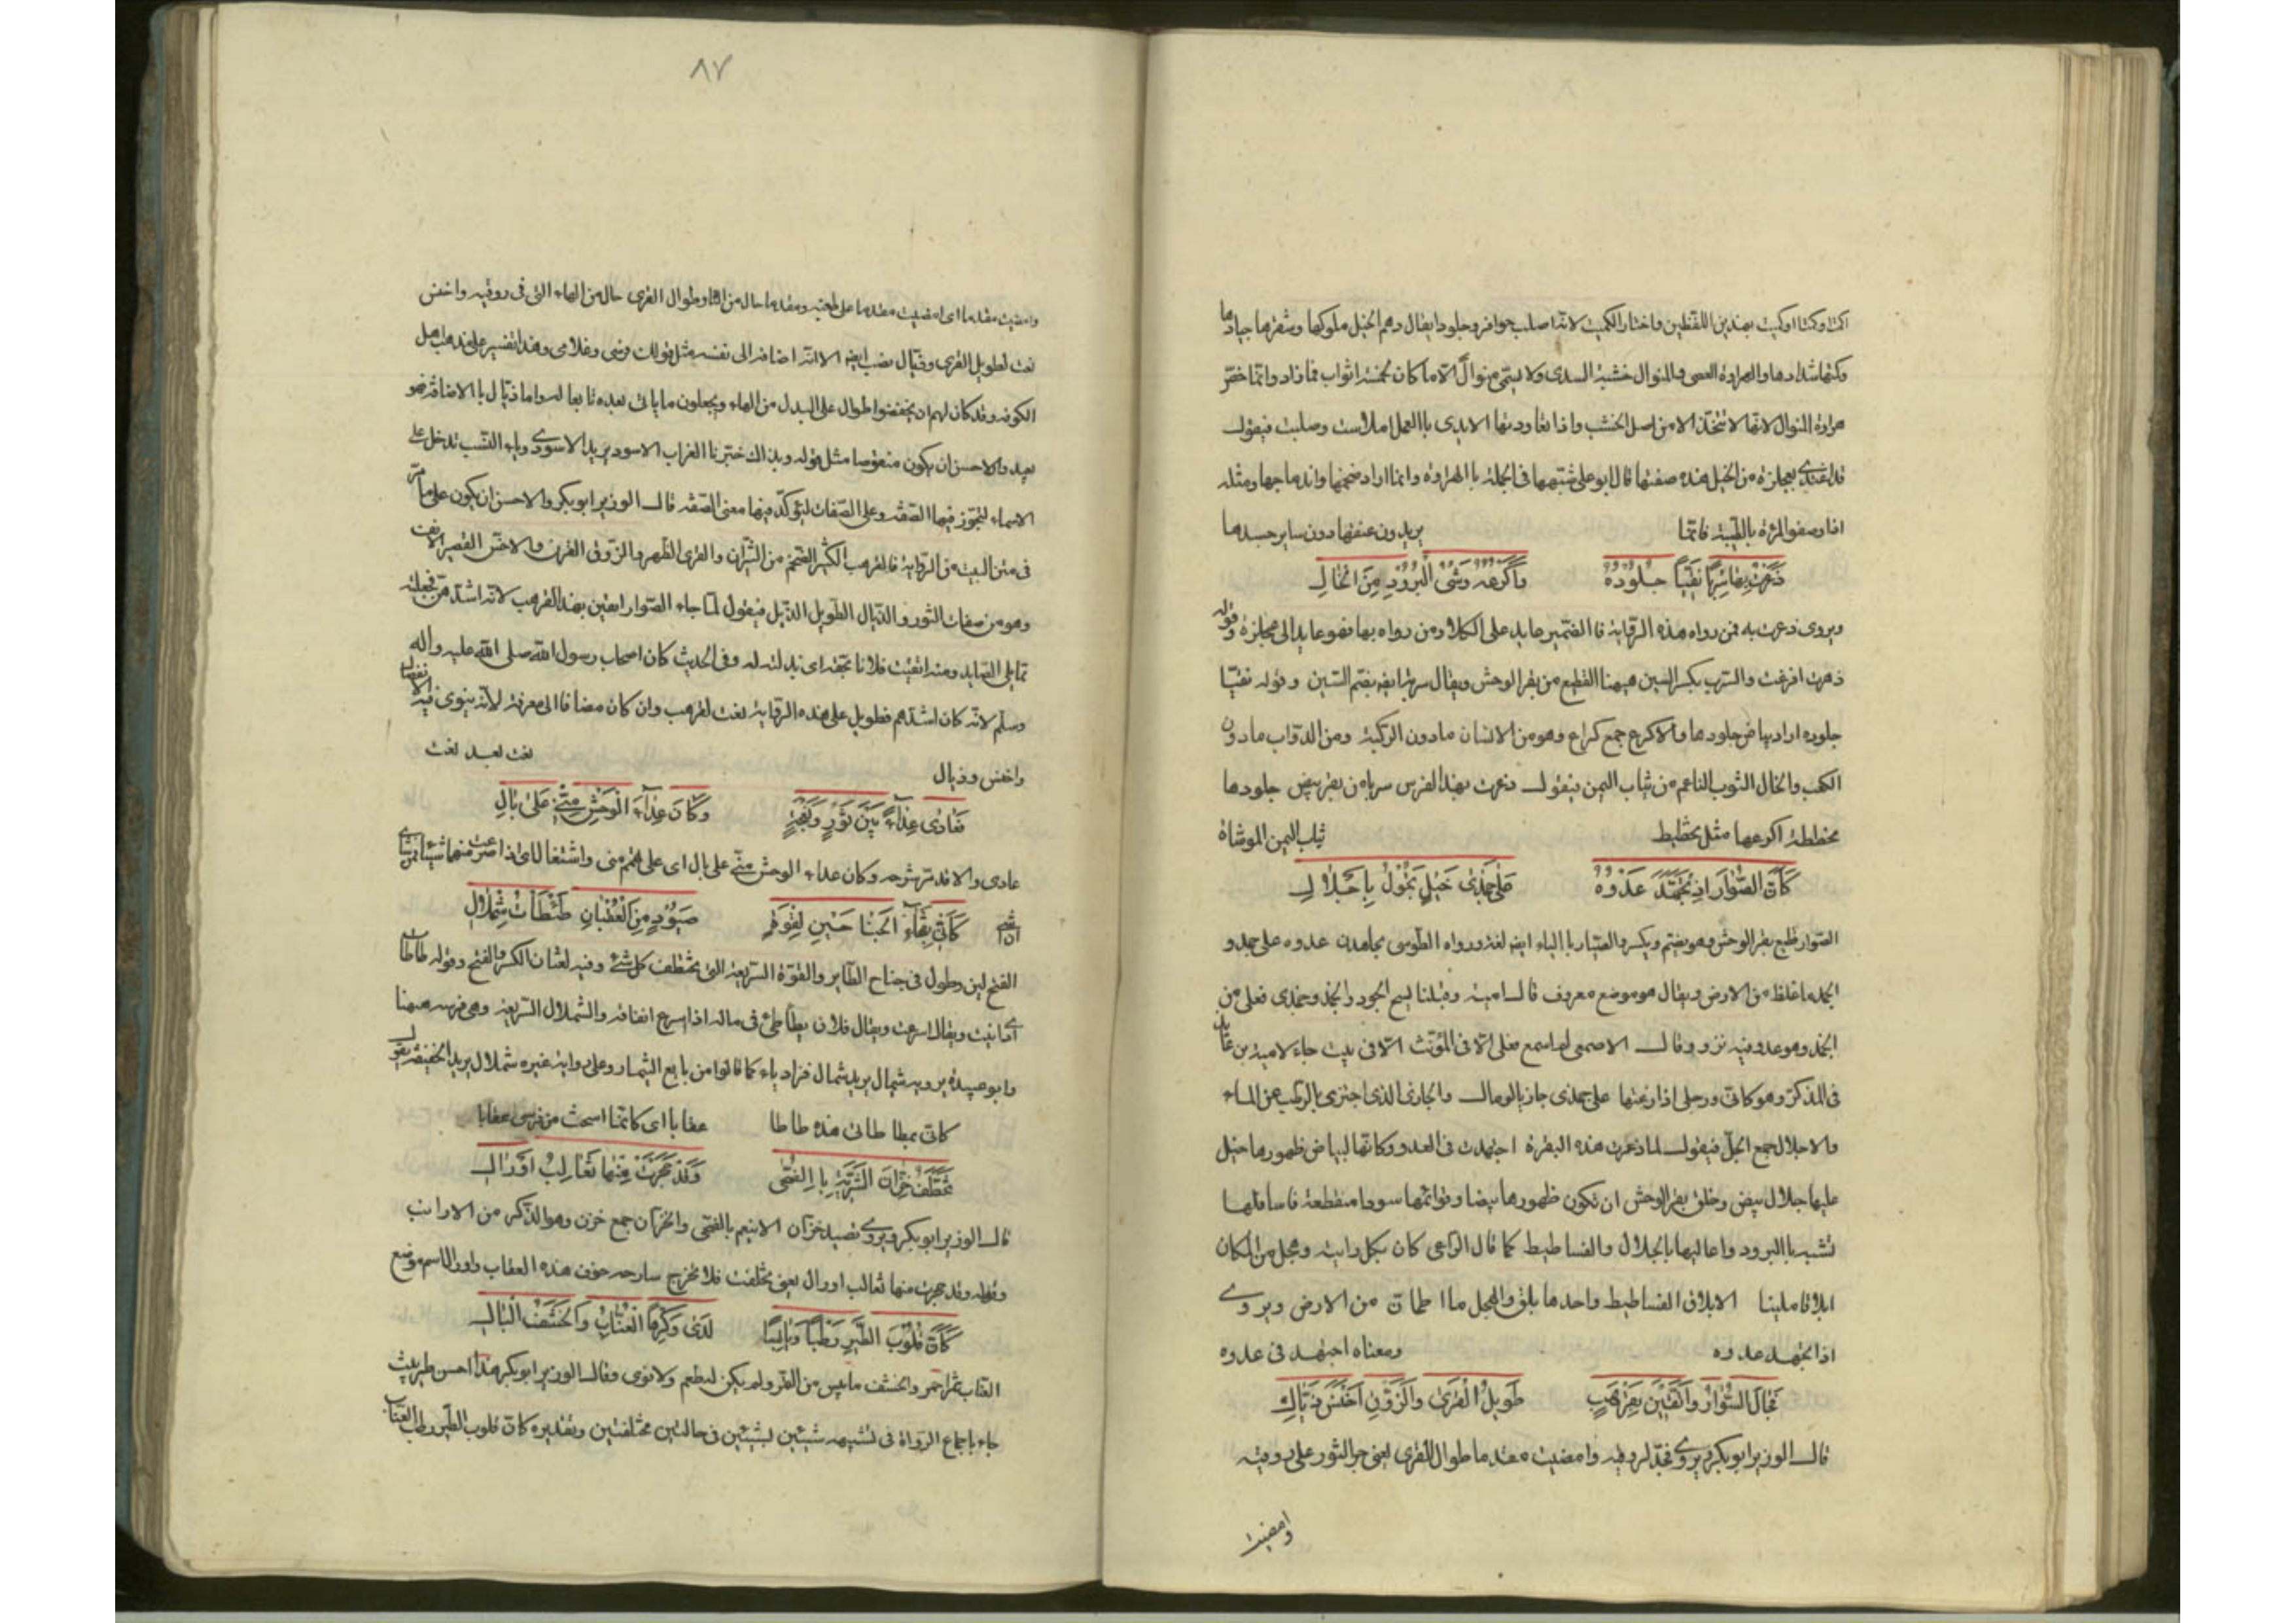 اكمت وكمتا او كميت بهذين اللفظين واختار الكميت لانه اصلب حوافر وجلودا يقال دهم الخيل ملوكها وشقرها جيادها
وكمتها شدادها والهراوة العصى والمنوال خشبة السدى ولا يسمى منوال الا ما كان لخمسة اثواب فما زاد وانما خص
هراوة المنوال لانها لا تتخذ الا من اصل الخشب واذا تعاودتها الايدى بالعمل املاست وصلبت فيقول
قد اغتدى بعجلزة من الخيل هذه صفتها قال ابو على شبهها فى الجملة بالهراوة وانما اراد ضمنها واندماجها ومثله
اذا وصفوا المرءة بالظبية فانما يريدون عنقها دون ساير جسدها
ذعرت بها سربا نقيا جلوده واكرعه وشى البرود من الخال
ويروى ذعرت به فمن رواه هذه الرواية فالضمير عايد على الكلاء ومن رواه بها فهو عايد الى عجلزة وقوله
ذعرت افزعت والسرب بكسر السين ههنا القطيع من بقر الوحش ويقال سرب ايضا بفتح السين وقوله نقيا
جلوده اراد بياض جلودها والاكرع جمع كراع وهو من الانسان ما دون الركبة ومن الدواب ما دون
الكعب والخال الثوب الناعم من ثياب اليمن فيقول ذعرت بهذا الفرس سربا من بقر بيض جلودها
مخططة اكرعها مثل تخطيط ثياب اليمن الموشاة
كان الصوار اذ تجهد عدوه على جمزى خيل تجول باجلال
الصوار قطيع بقر الوحش وهو بضم وبكسر والصيار بالياء ايضا لغة ورواه الطوسى يجاهدن عدوه على جمد و
الجمد ما غلظ من الارض ويقال هو موضع معروف قال امية وقبلنا سبح الجود والجمد وجمزى فعلى من
الجمز وهو عدو فيه نزو وقال الاصمعى لم اسمع فعلى الا فى المؤنث الا فى بيت جاء لامية بن عايذ
فى المذكر وهو كانى ورحلى اذا رعتها على جمزى جازئ بالرمال والجازئ الذى اجتزى بالرطب عن الماء
والاجلال جمع الجل فيقول لما ذعرت هذه البقرة اجتهدت فى العدو وكانها لبياض ظهورها خيل
عليها جلال بيض وخلق بقر الوحش ان تكون ظهورها بيضا وقوائمها سودا منقطعة فاسافلها
تشبه بالبرود واعاليها بالجلال والفساطيط كما قال الراعى كان بكل رابية وهجل من الكتان
ابلاقا مبنينا الابلاق الفساطيط واحدها بلق والهجل ما اطمان من الارض ويروى
اذ اتجهد عدوه ومعناه اجتهد فى عدوه
فجال الصوار واتقين بقرهب طويل القرى والروق اخنس ذيال
قال الوزير ابو بكر ويروى فجر لروقيه وامضيت مقدما طوال القرى يعنى خر الثور على روقيه
وامضيت
٨٧
وامضيت مقدما اى امضيت مقدما على طعنه ومقدما حال من التا وطوال القرى حال من الهاء التى فى روقيه واخنس
نعت لطويل القرى وذيال نصب ايضا الا انه اضافه الى نفسه مثل قولك فرسى وغلامى وهذا تفسير على مذهب اهل
الكوفة وقد كان لهم ان يخفضوا طوال على البدل من الهاء ويجعلون ما ياتى بعده تابعا له واما ذيال بالاضافة فهو
بعيد والاحسن ان يكون منقوصا مثل قوله وبذاك خبرنا الغراب الاسود يريد الاسودى وياء النسب تدخل على
الاسماء لتجوز فيها الصفة وعلى الصفات ليؤكد فيها معنى الصفة قال الوزير ابو بكر والاحسن ان يكون على ما مر
فى متن البيت من الرواية فالقرهب الكبير الضخم من الثيران والقرى الظهر والروق القرن والاخنس القصير الانف
وهو من صفات الثور والذيال الطويل الذيل فيقول لما جاء الصوار اتقين بهذا القرهب لانه اشدهن فجعلنه
مما يلى الصايد ومنه اتقيت فلانا بحقه اى بذلته له وفى الحديث كان اصحاب رسول الله صلى الله عليه واله
وسلم لانه كان اشدهم فطويل على هذه الرواية نعت لقرهب وان كان مضافا الى معرفة لانه ينوى فيه الانفصال
واخنس وذيال نعت بعد نعت
فعادى عداء بين ثور ونعجة وكان عداء الوحش منى على بال
عادى والا قد مر شرحه وكان عداء الوحش منى على بال اى على هم منى واشتغال
كانى بفتخاء الجناحين لقوة صيود من العقبان طاطات شملال
الفتخ لين وطول فى جناح الطاير واللقوة السريعة التى تخطف كل شئ وفيه لغتان الكسر والفتح وقوله طاطات
اى ويقال اسرعت ويقال فلان يطأطئ فى ماله اذا اسرع انفاقه والشملال السريعة وهى فرسه ههنا
وابو عبيدة يرويه شيمال يريد شمال فزاد ياء كما قالوا من يايع الثيمار وعلى رواية غيره شملال يريد الخفيفة يقول
كانى بطاطاتى هذه طاطا عقابا اى كانما اسحث من فرسى عقابا
تخطف خزان الشربة بالضحى وقد حجرت منها ثعالب اورال
قال الوزير ابو بكر ويروى تصيد خزان الانيعم بالضحى والخزان جمع خزز وهو الذكر من الارانب
وقوله وقد حجرت منها ثعالب اورال يعنى تخلفت فلا تخرج سارحة خوف هذه العقاب واورال اسم موضع
كان قلوب الطير رطبا ويابسا لدى وكرها العناب والحشف البالى
العناب ثمر احمر والحشف ما يبس من التمر ولم يكن له طعم ولا نوى وقال الوزير ابو بكر هذا احسن بيت
جاء باجماع الرواة فى تشبيه شيئين لشيئين فى حالتين مختلفتين وتقديره كان قلوب الطير رطبا العناب